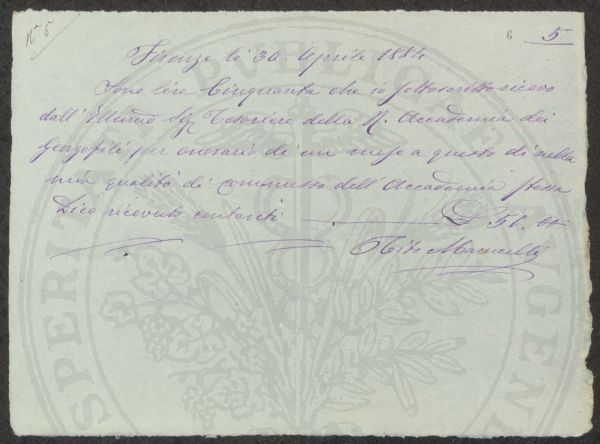 Nº 5
6 5
Firenze li 30. Aprile 1884
Sono lire Cinquanta che io sottoscritto ricevo
dall' Sig Tesoriere della R. Accademia dei
Georgofili per onorario di un mese a questo dì nella
mia qualità di commesso dell' Accademia stessa
Dico ricevute contanti £ 50.
Tito